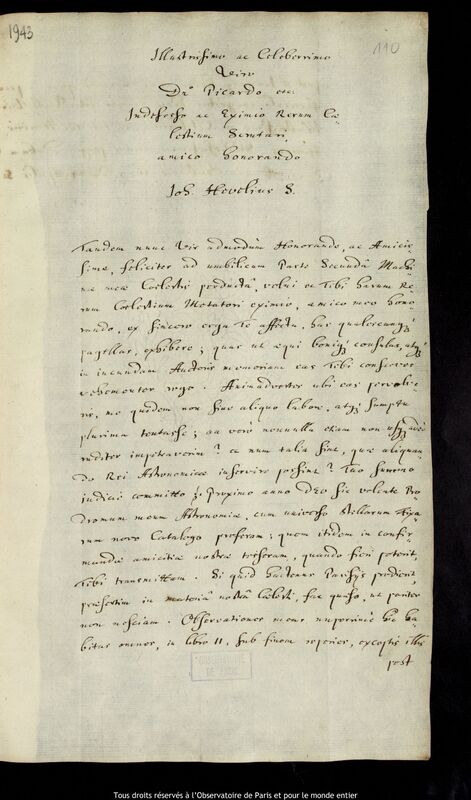 1943
110
Illustrissimo ac Celeberrimo
Viro
Dn. Picardo etc.
Indefesso ac Eximio Rerum Cœ-
lestium Scrutatori,
amico honorando
Joh. Hevelius S.
Tandem nunc Vir admodum Honorande, ac Amicis-
sime, feliciter ad umbilicum Parte Secundâ Machi-
næ meæ Cœlestis perductâ, volui et Tibi harum Re-
rum Cœlestium Metatori eximio, amico meo hono-
rando, ex sincero erga Te affectu, has qualescunq;
pagellas, exhibere; quas ut æqui boniq; consulas, atq;
in jucundam Auctoris memoriam eas Tibi conserves
vehementer rogo. Animadvertes ubi eas pervolve-
ris, me quidem non sine aliquo labore, atq; sumptu
plurima tentasse; an verò nonnulla etiam non usq; adeò
infeliciter impetraverim? et num talia sint, quæ aliquan-
do Rei Astronomicæ inservire possint? Tuo summo
judicio committo. Proximo anno DEO sic volente Pro-
dromum meum Astronomiæ, cum universo Stellarum Fixa-
rum novo Catalogo proferam; quem itidem in confir-
mandæ amicitiæ nostræ tesseram, quando fieri poterit,
Tibi transmittam. Si quid hactenus Parisijs prodierit
præsertim in materiâ nostrâ Cœlesti, fac quæso, ut pariter
non nesciam. Observationes meæ nuperrimè hic ha-
bitas omnes, in libro II, sub finem reperies, exceptis illis
post
OBSERVATOIRE
DE PARIS
Tous droits réservés à l'Observatoire de Paris et pour le monde entier